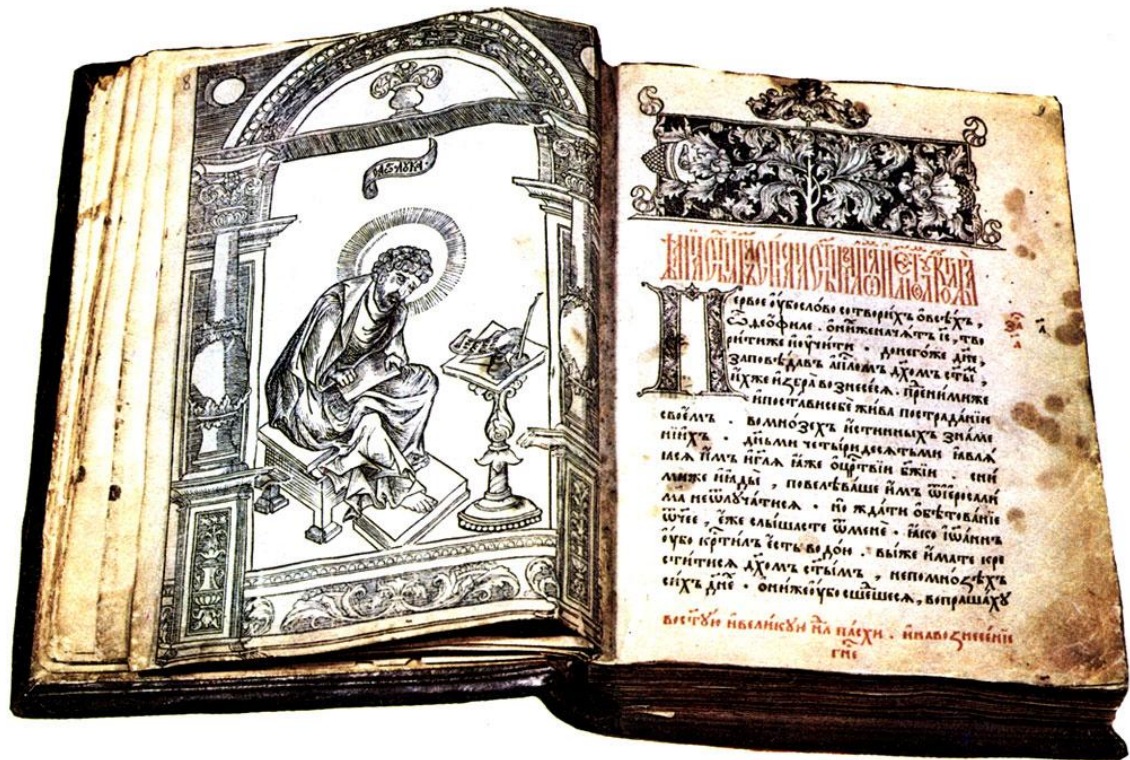 8
9
Первое ѹ҆́бо сло́во сотвори́хъ ѻ҆ все́хъ ,
ѽ део́филе . ѻ҆ ни́хже нача́тъ і҆с҃ , тво
ри́ти же и҆ ѹ҆чи́ти . до него́же дн҃е ,
заповѣ́давъ а҆пⷭ҇ломъ дх҃омъ ст҃ы́мъ ,
и҆́хже и҆збра̀ вознесе́сѧ . пре́ ни́ми же
и҆ поста́ви себѐ жи́ва по страда́нїи
свое́мъ . во мно́зехъ и҆́стинныхъ зна́ме
нїихъ . дньмѝ четы́ридесѧтьми ꙗ҆влѧ́
ꙗсѧ и҆̀мъ и҆ гл҃ѧ ꙗ҆́же ѻ҆ црⷭ҇твїи бж҃їи . сни́
ми же и҆ ꙗды̀ , повелѣва́ше и҆̀мъ ѿ їерⷭ҇али́
ма не ѿлуча́тисѧ . но жда́ти ѻ҆бѣтова́нїе
ѻ҆́ч҃ее , е҆́же слы́шасте ѿ менѐ . ꙗ҆́ко і҆ѡ҆а́ннъ
ѹ҆́бо крⷭ҇ти́лъ е҆́сть водо́ю . вы́ же и҆́мате кре
сти́тисѧ дх҃омъ ст҃ы́мъ , не по мно́ѕѣхъ
си́хъ дн҃е . ѻ҆ни́ же ѹ҆́бо сше́дшесѧ , вопраша́хꙋ
во ст҃ꙋ́ю и҆ вели́кꙋю нлⷣю па́схи . и҆ на вознесе́нїе
гн҃е